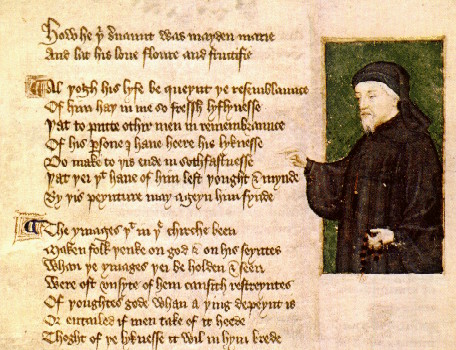 How he þi seruaunt was mayden marie
And lat his loue floure and fructifie
Al þogh his lyfe be queynt þe resemblaunce
Of him haþ in me so fressh lyflynesse
Þat to putte othir men in remembraunce
Of his persone I haue heere his lyknesse
Do make to þis ende in sothfastnesse
Þat þei þt haue of him left þought & mynde
By þis peynture may ageyn him fynde
The ymages þt in þe chirche been
Maken folk þenke on god & on his seyntes
Whan þe ymages þei be holden & seen
Were oft vnsyte of hem causith restreyntes
Of þoughtes gode whan a þing depeynt is
Or entailed if men take of it heede
Thoght of þe lyknesse it wil in hym brede